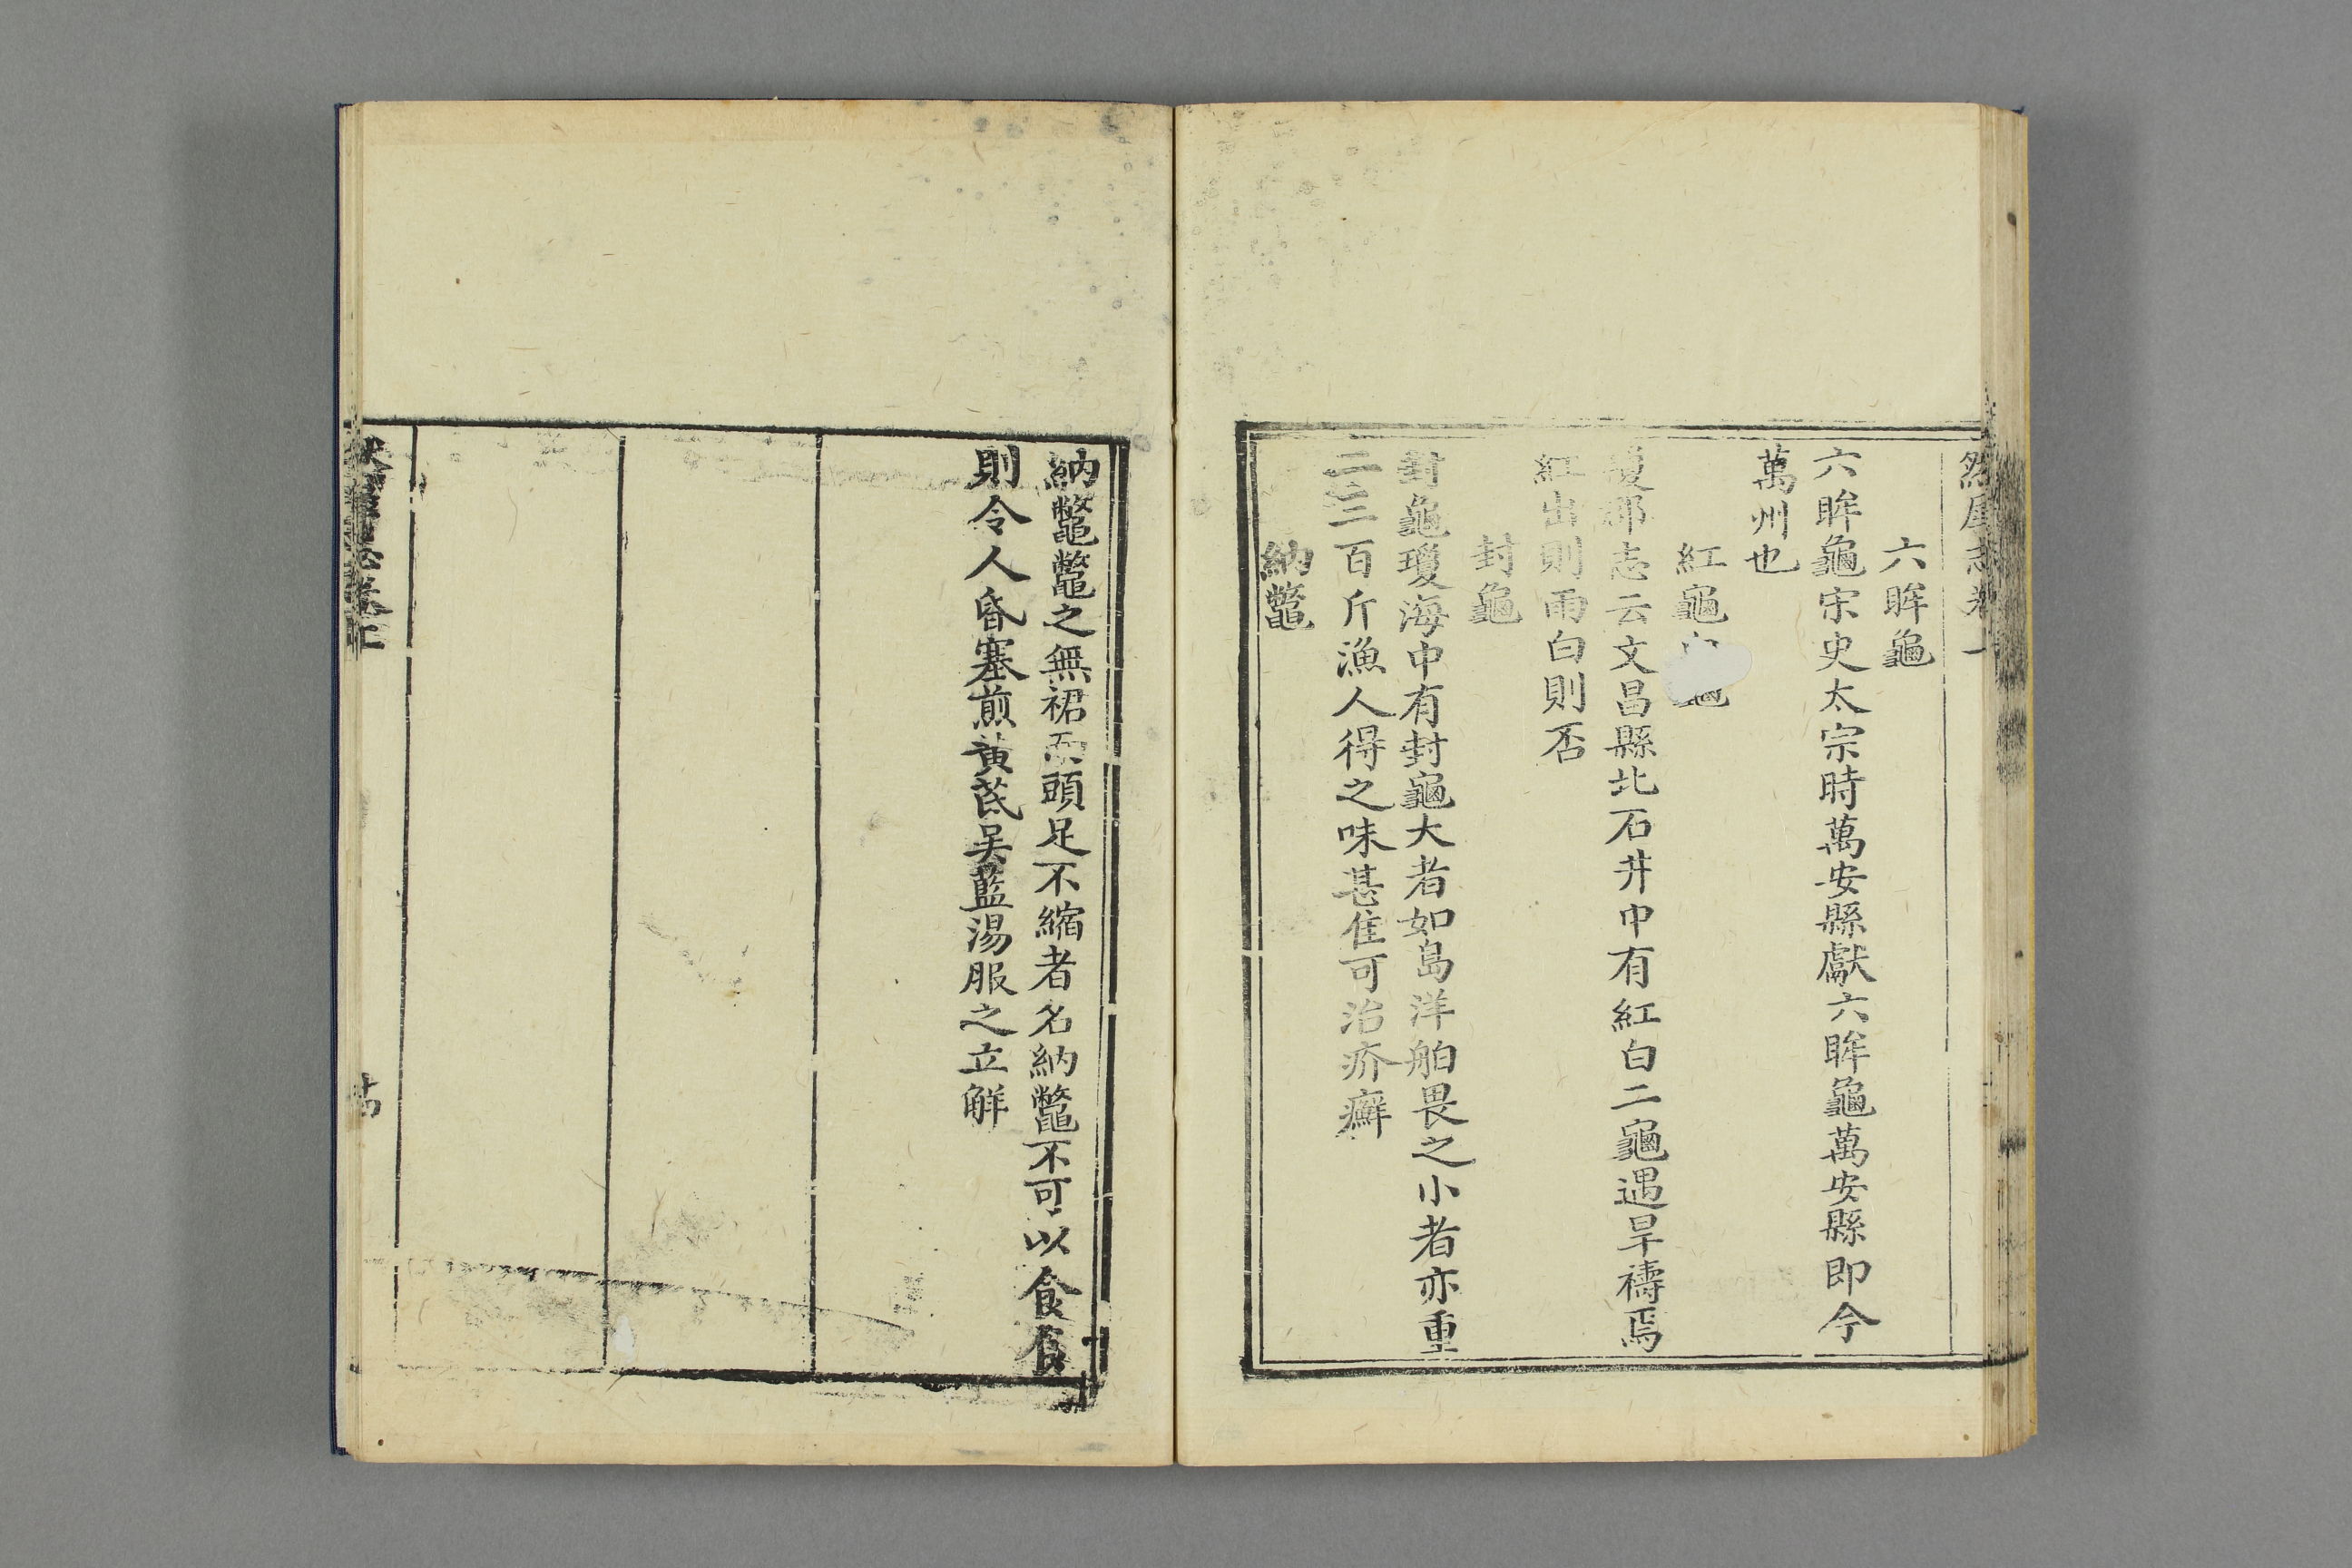 然犀志卷上
六眸龜
六眸龜宋史太宗時萬安縣獻六眸龜萬安縣即今
萬州也
紅龜
瓊郡志云文昌縣北石井中有紅白二龜遇旱禱焉
紅出則雨白則否
封龜
封龜瓊海中有封龜大者如島洋舶畏之小者亦重
二三百斤漁人得之味甚佳可治疥癬
納鼈
納鼈鼈之無裙而頭足不縮者名納鼈不可以食食
則令人昏塞煎黃芪吴藍湯服之立觧
然犀志卷上